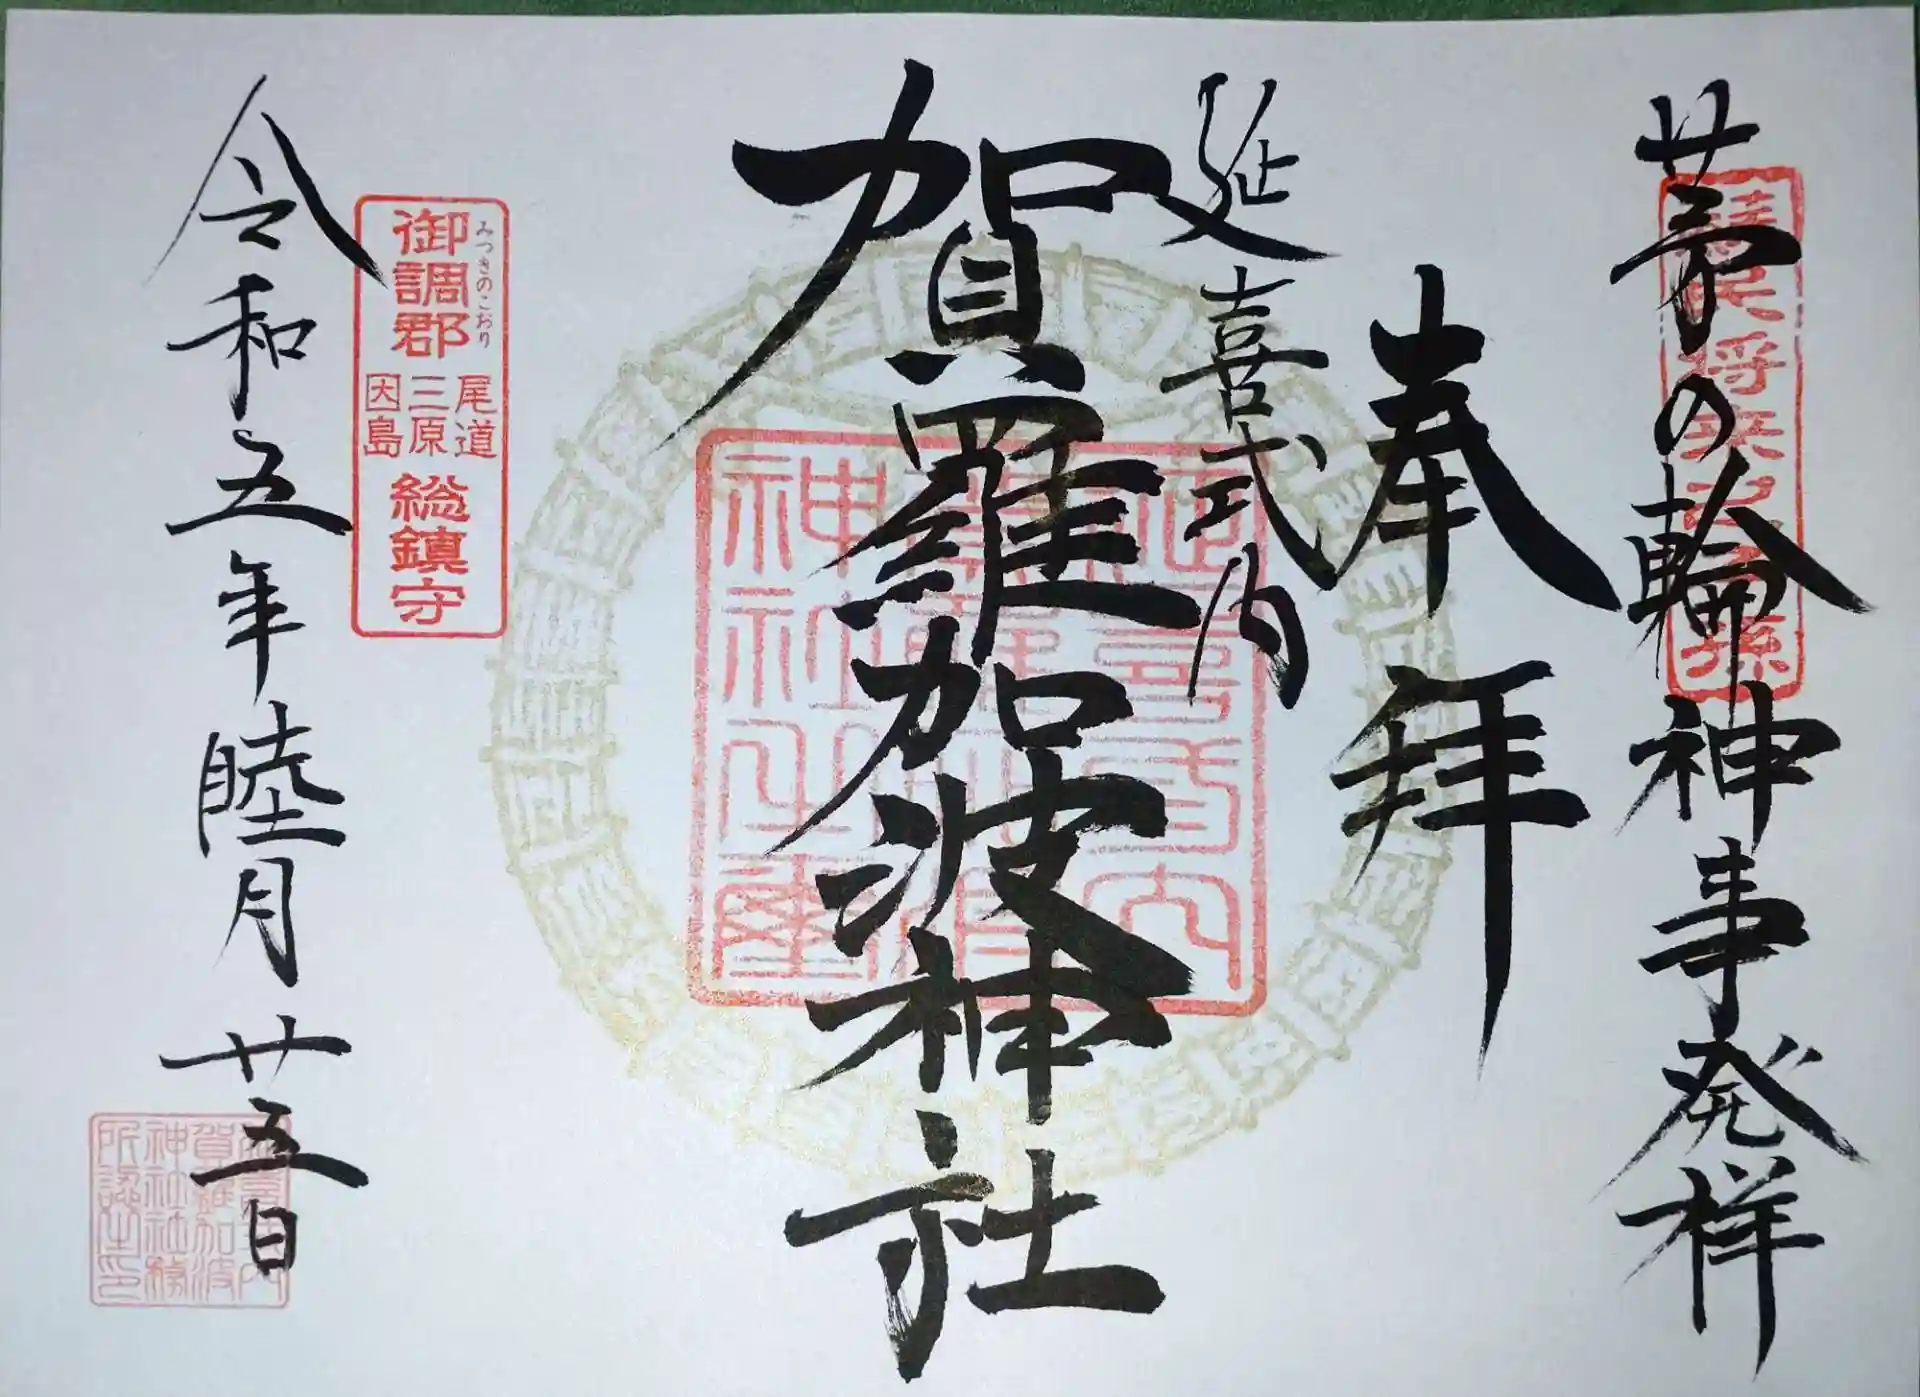 茅の輪神事発祥
蘇民将来之子孫
奉拝
延喜式内
賀羅加波神社
延喜式内
神社之印
みつきのこおり
御調郡
尾道
三原
因島
総鎮守
令和五年陸月廿五日
賀羅加波
神社社務
所認之印